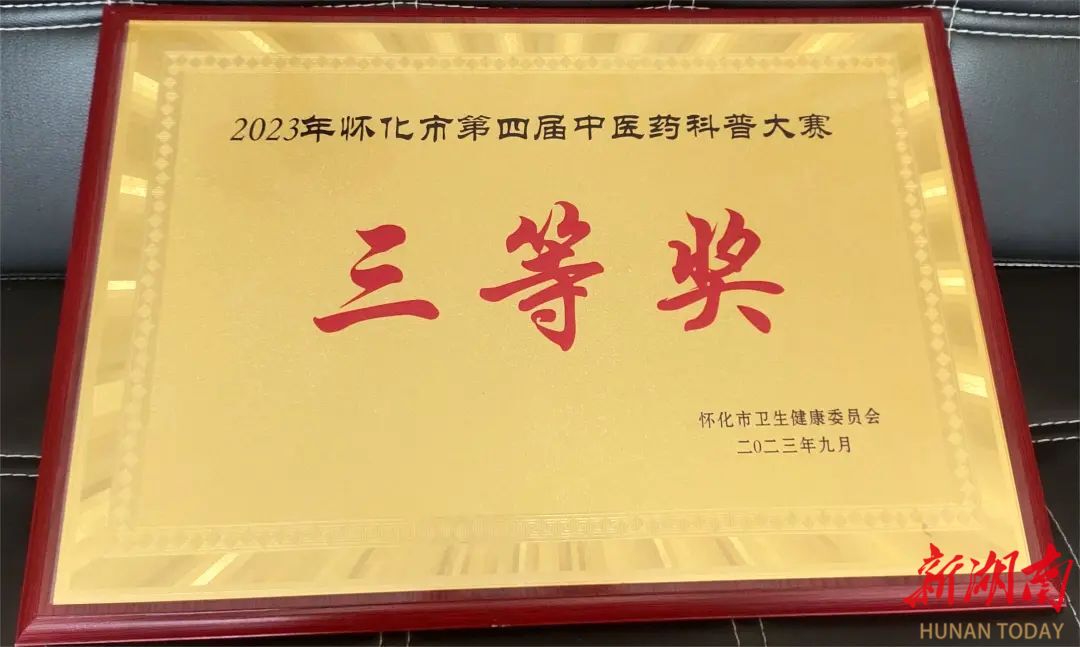 2023年怀化市第四届中医药科普大赛
三等奖
怀化市卫生健康委员会
二0二三年九月
新湖南
HUNAN TODAY